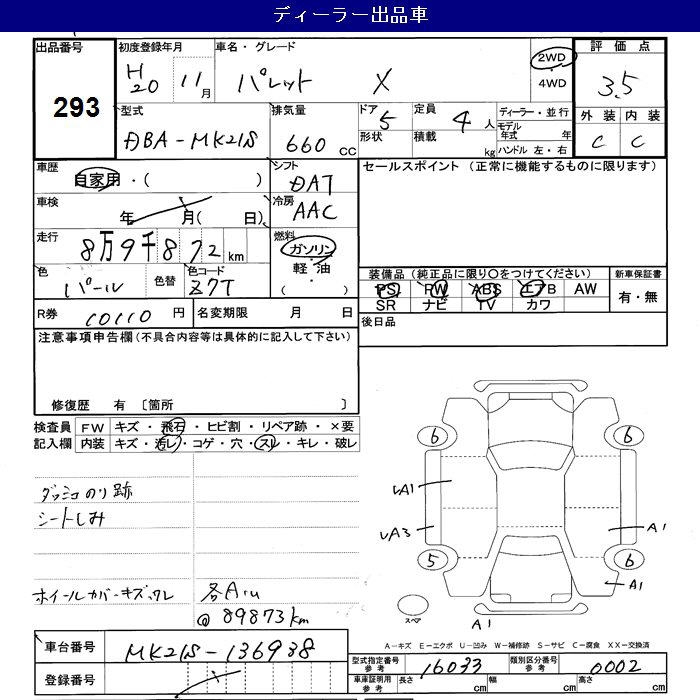 ディーラー出品車
出品番号
293
初度登録年月
H20 11月
車名・グレード
パレット X
2WD
4WD
評価点
3.5
外装 内装
C C
型式
DBA-MK21S
排気量
660 cc
ドア 5
形状
定員 4 人
積載 kg
ディーラー・並行
モデル年式 年
ハンドル 左・右
車歴
自家用・( )
シフト
DAT
車検
年 月( 日)
冷房
AAC
走行
8万9千872km
燃料
ガソリン
軽油
・( )
色
パール
色替
色コード
Z7T
R券 10110 円
名変期限 月 日
セールスポイント (正常に機能するものに限ります)
装備品(純正品に限り○をつけてください)
新車保証書
PS PW ABS エアB AW
SR ナビ TV カワ
有・無
後日品
注意事項申告欄(不具合内容等は具体的に記入して下さい)
修復歴 有 〔箇所 〕
検査員 FW キズ・飛石・ヒビ割・リペア跡・×要
記入欄 内装 キズ・汚レ・コゲ・穴・スレ・キレ・破レ
ダッシュのり跡
シートしみ
ホイールカバーキズ、ワレ
各A1U
@89873km
6
6
5
6
UA1
UA3
A1
A1
A1
スペア
A-キズ E-エクボ U-凹み W-補修跡 S-サビ C-腐食 XX-交換済
車台番号 MK21S-136938
登録番号
型式指定番号 参考 16033
類別区分番号 参考 0002
車庫証明用 参考 長さ cm 幅 cm 高さ cm